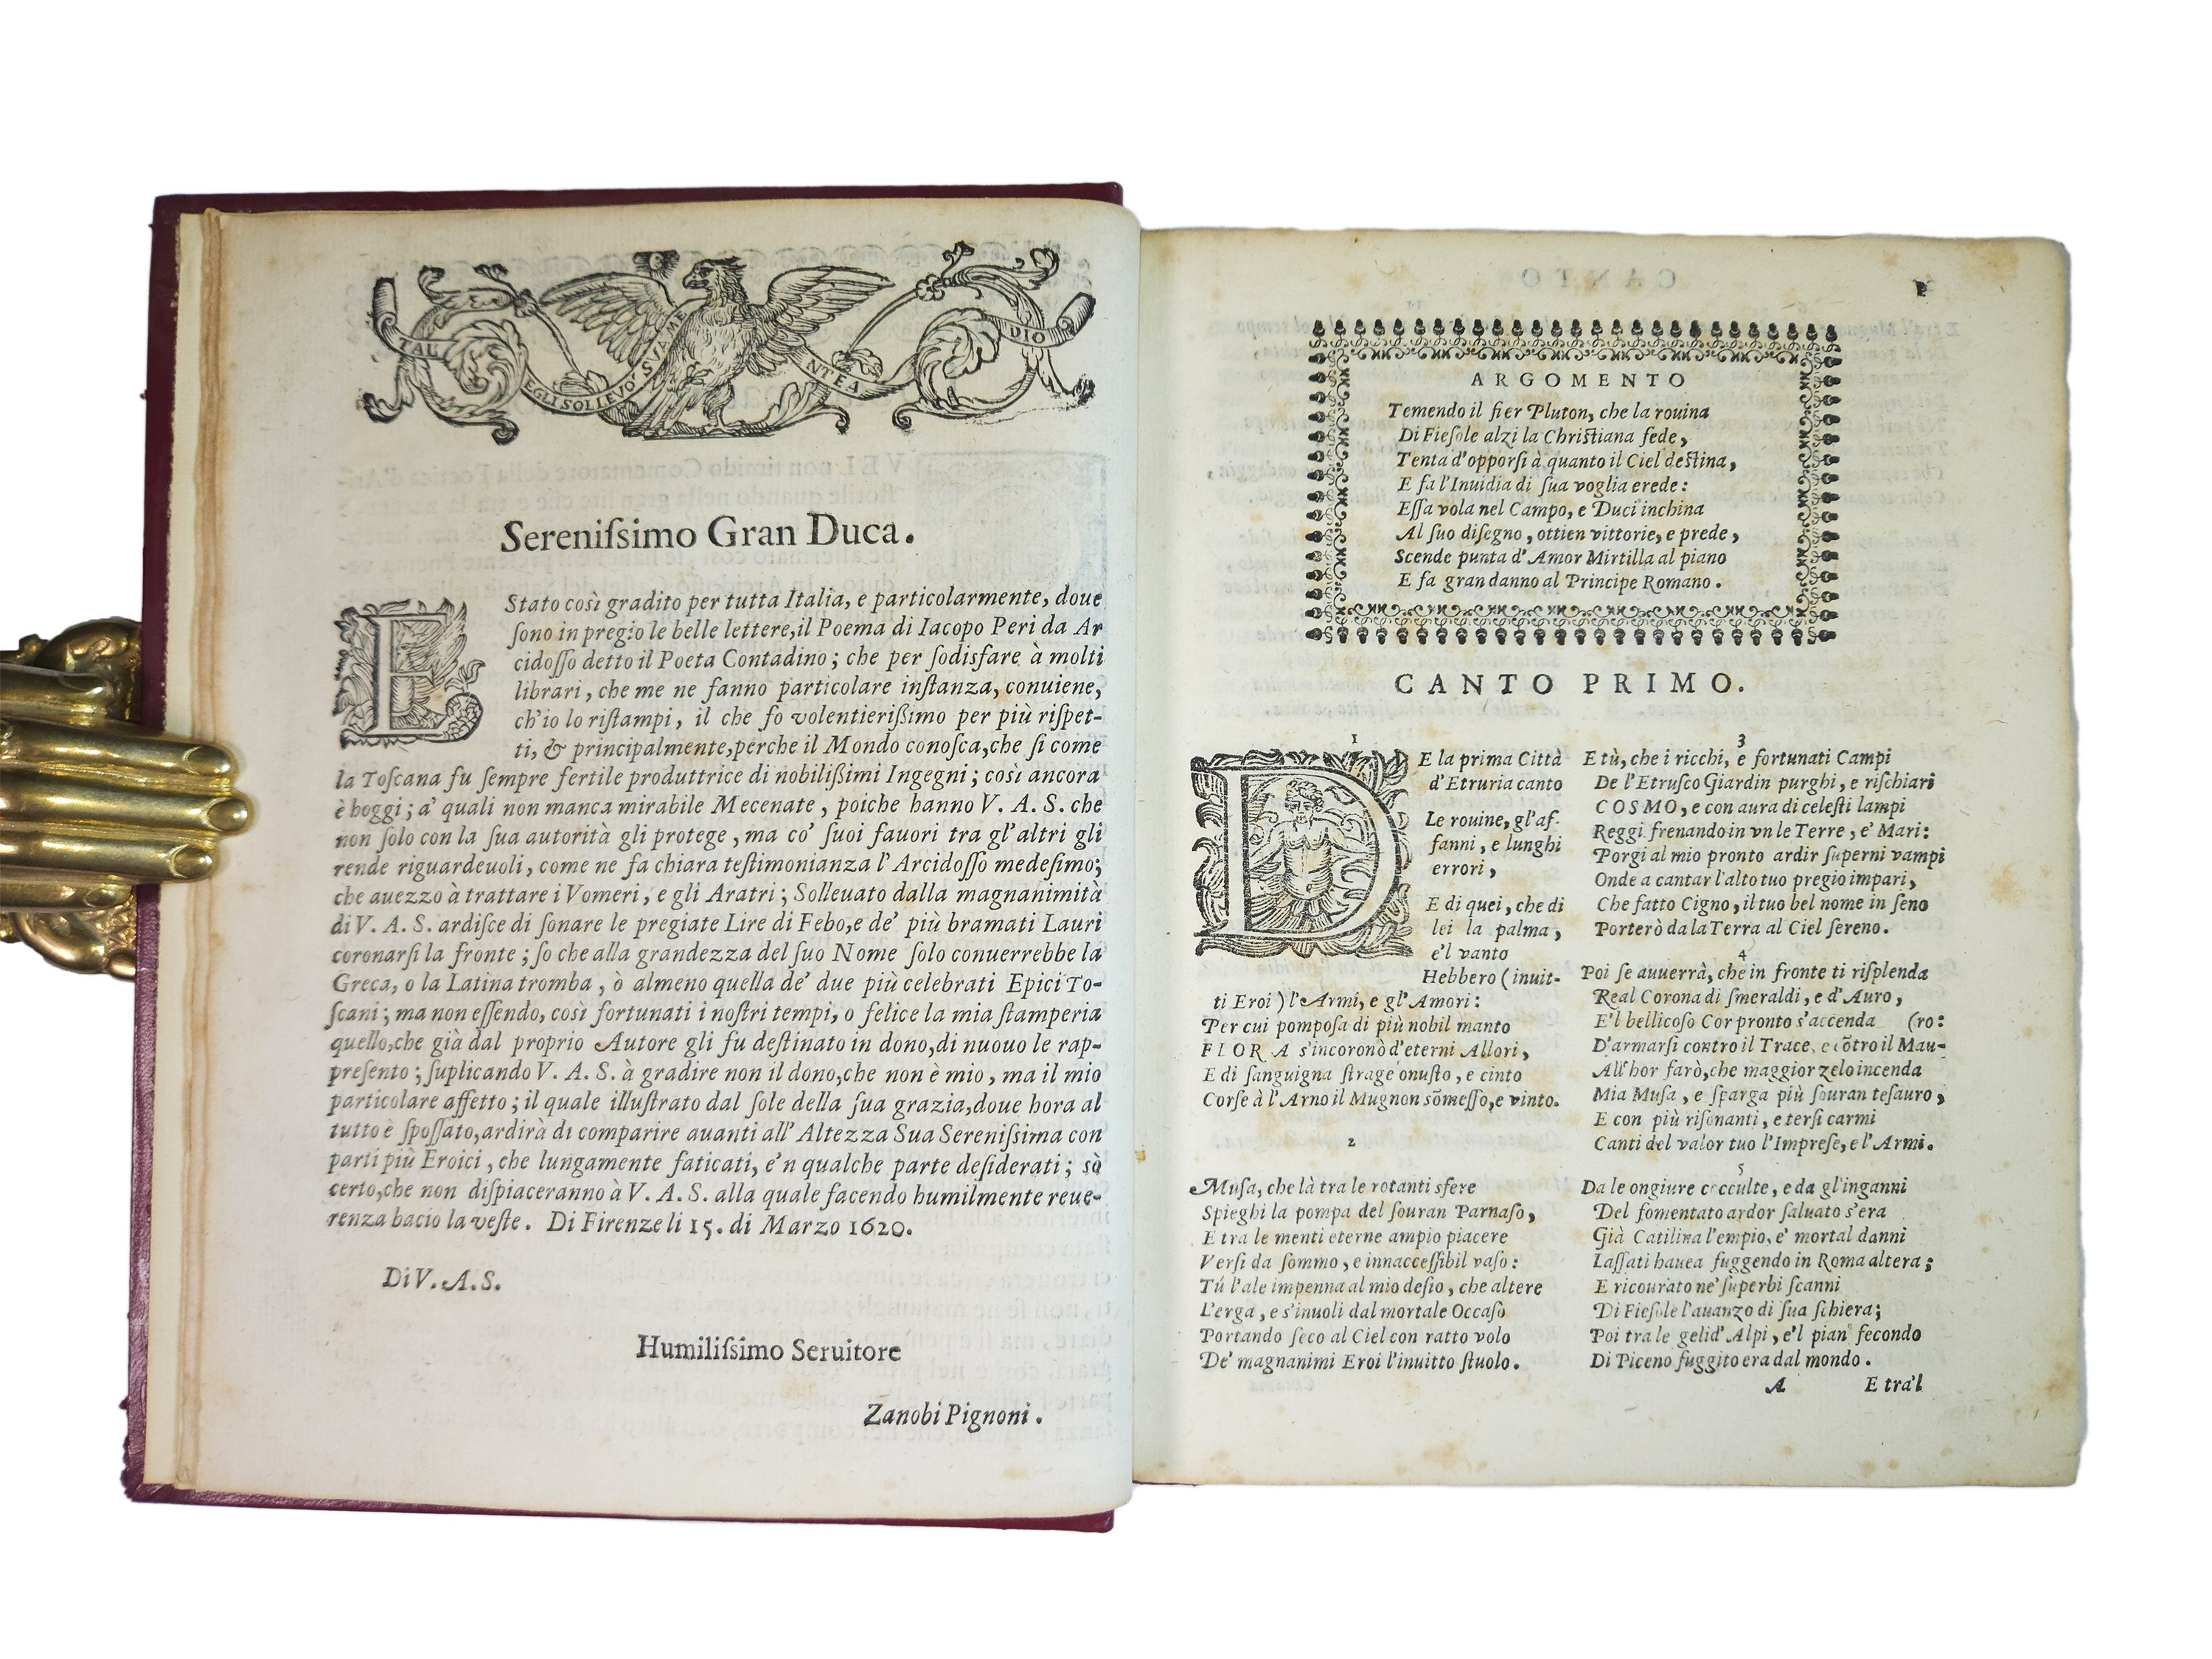 TAL EGLI SOLLEVO SVA ME NTE A DIO
Sereniſsimo Gran Duca.
E Stato così gradito per tutta Italia, e particolarmente, doue
ſono in pregio le belle lettere,il Poema di Iacopo Peri da Ar
cidoſſo detto il Poeta Contadino; che per ſodisfare à molti
librari, che me ne fanno particolare inſtanza, conuiene,
ch'io lo riſtampi, il che fo volentierißimo per più riſpet-
ti, & principalmente,perche il Mondo conoſca,che ſi come
la Toſcana fu ſempre fertile produttrice di nobilißimi Ingegni; così ancora
è hoggi; a' quali non manca mirabile Mecenate, poiche hanno V. A. S. che
non ſolo con la ſua autorità gli protege, ma co' ſuoi fauori tra gl'altri gli
rende riguardeuoli, come ne fa chiara teſtimonianza l'Arcidoſſo medeſimo;
che auezzo à trattare i Vomeri, e gli Aratri; Solleuato dalla magnanimità
di V. A. S. ardiſce di ſonare le pregiate Lire di Febo,e de' più bramati Lauri
coronarſi la fronte; ſo che alla grandezza del ſuo Nome ſolo conuerrebbe la
Greca, o la Latina tromba, ò almeno quella de' due più celebrati Epici To-
ſcani; ma non eſſendo, così fortunati i noſtri tempi, o felice la mia ſtamperia
quello,che già dal proprio Autore gli fu deſtinato in dono,di nuouo le rap-
preſento; ſuplicando V. A. S. à gradire non il dono,che non è mio, ma il mio
particolare affetto; il quale illuſtrato dal ſole della ſua grazia,doue hora al
tutto è ſpoſſato,ardirà di comparire auanti all' Altezza Sua Sereniſsima con
parti più Eroici, che lungamente faticati, e'n qualche parte deſiderati; sò
certo,che non diſpiaceranno à V. A. S. alla quale facendo humilmente reue-
renza bacio la veſte. Di Firenze li 15. di Marzo 1620.
Di V. A. S.
Humiliſsimo Seruitore
Zanobi Pignoni.
ARGOMENTO
Temendo il fier Pluton, che la rouina
Di Fieſole alzi la Chriſtiana fede,
Tenta d'opporſi à quanto il Ciel deſtina,
E fa l'Inuidia di ſua voglia erede:
Eſſa vola nel Campo, e Duci inchina
Al ſuo diſegno, ottien vittorie, e prede,
Scende punta d'Amor Mirtilla al piano
E fa gran danno al Principe Romano.
CANTO PRIMO.
1
DE la prima Città
d'Etruria canto
Le rouine, gl'af-
fanni, e lunghi
errori,
E di quei, che di
lei la palma,
e'l vanto
Hebbero (inuit-
ti Eroi) l'Armi, e gl'Amori:
Per cui pompoſa di più nobil manto
FLORA s'incoronò d'eterni Allori,
E di ſanguigna ſtrage onuſto, e cinto
Corſe à l'Arno il Mugnon sõmeſſo,e vinto.
2
Muſa, che là tra le rotanti sfere
Spieghi la pompa del ſouran Parnaſo,
E tra le menti eterne ampio piacere
Verſi da ſommo, e innacceſſibil vaſo:
Tú l'ale impenna al mio deſio, che altere
L'erga, e s'inuoli dal mortale Occaſo
Portando ſeco al Ciel con ratto volo
De' magnanimi Eroi l'inuitto ſtuolo.
3
E tù, che i ricchi, e fortunati Campi
De l'Etruſco Giardin purghi, e riſchiari
COSMO, e con aura di celeſti lampi
Reggi frenando in vn le Terre, e' Mari:
Porgi al mio pronto ardir ſuperni vampi
Onde a cantar l'alto tuo pregio impari,
Che fatto Cigno, il tuo bel nome in ſeno
Porterò da la Terra al Ciel ſereno.
4
Poi ſe auuerrà, che in fronte ti riſplenda
Real Corona di ſmeraldi, e d'Auro,
E'l bellicoſo Cor pronto s'accenda (ro:
D'armarſi contro il Trace, e cõtro il Mau-
All'hor farò,che maggior zelo incenda
Mia Muſa, e ſparga più ſouran teſauro,
E con più riſonanti, e terſi carmi
Canti del valor tuo l'Impreſe, e l'Armi.
5
Da le ongiure occulte, e da gl'inganni
Del fomentato ardor ſaluato s'era
Già Catilina l'empio, e' mortal danni
Laſſati hauea fuggendo in Roma altera;
E ricourato ne' ſuperbi ſcanni
Di Fieſole l'auanzo di ſua ſchiera;
Poi tra le gelid' Alpi, e'l pian fecondo
Di Piceno fuggito era dal mondo.
A E tra'l